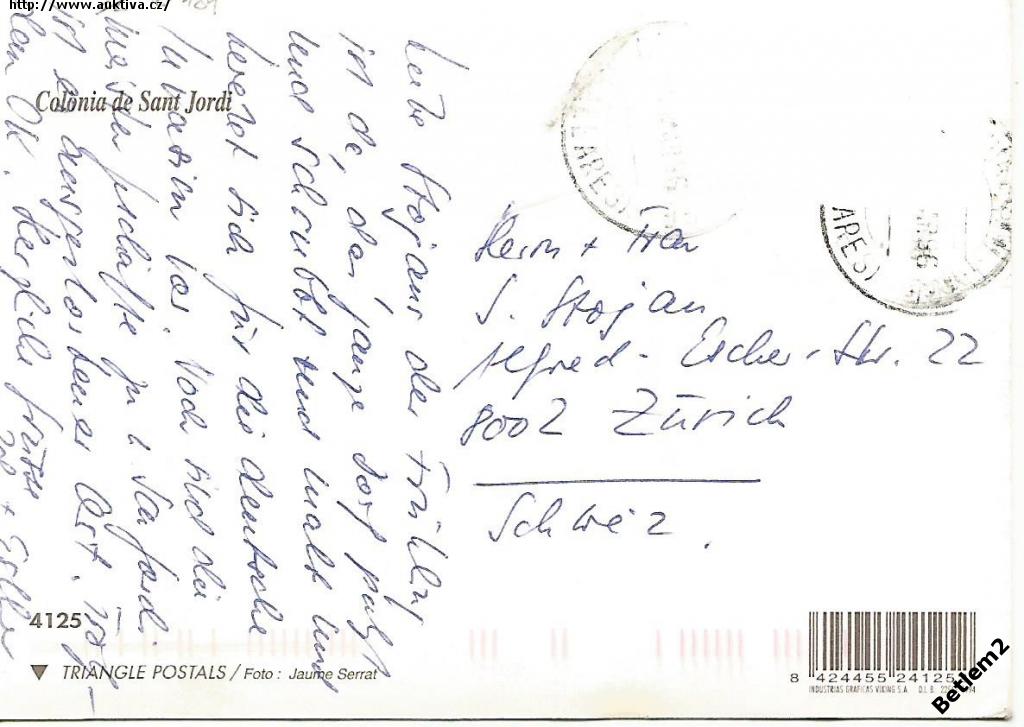 http://www.auktiva.cz/
Colònia de Sant Jordi
Liebe Stojans der Frühling
ist da, das ganze Dorf putzt
und schrubbt und malt und
bereitet sich für die deutsche
Invasion vor. Noch sind die
meisten Geschäfte zu u. San Jordi
ist ein ausgestorbener Ort.
Herzliche Grüsse
Herrn + Frau
S. Stojan
Alfred-Escher-Str. 22
8002 Zürich
Schweiz.
ARES)
ARES)
4125
TRIANGLE POSTALS / Foto : Jaume Serrat
8 424455 24125
INDUSTRIAS GRAFICAS VIKING S.A. D.L. B.
Betlem2